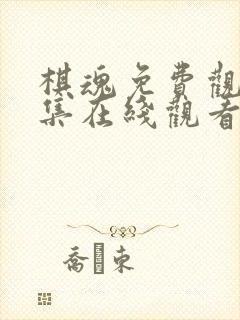 棋魂免費觀
集在綫觀看
喬 東